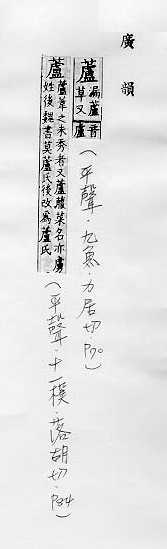 廣韻
蘆 漏蘆草又音盧
（平聲．九魚．力居切 P70）
蘆 蘆葦之未秀者又蘆菔菜名亦虜姓後魏書莫蘆氏後改為蘆氏
（平聲．十一模．落胡切．P84）